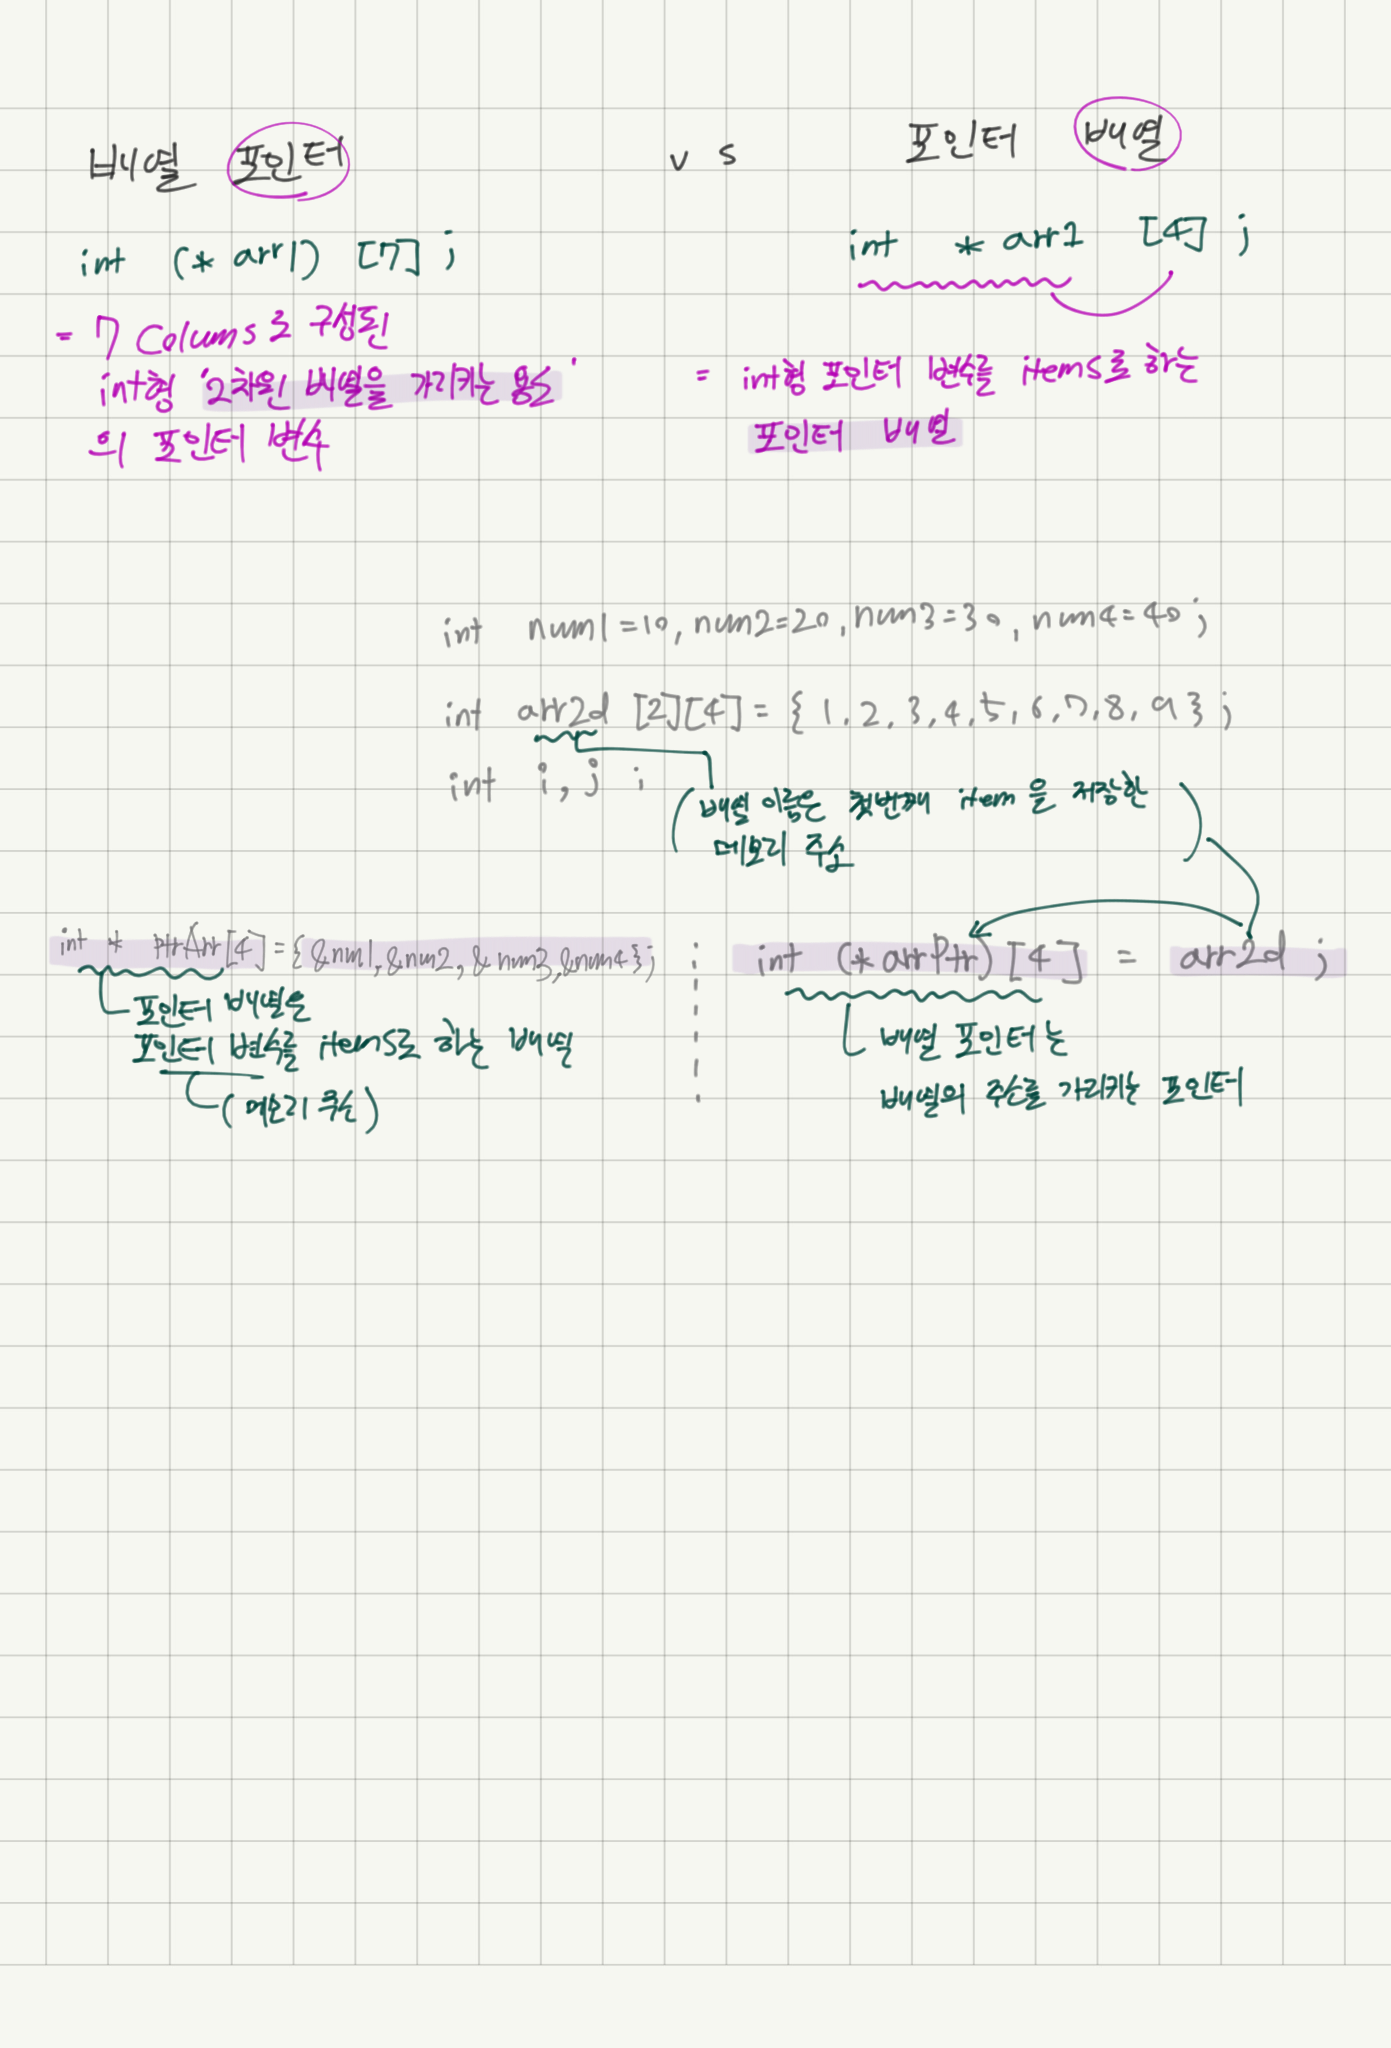 배열 포인터 vs 포인터 배열
int (* arr1) [7] ;
int * arr1 [4] ;
= 7 Colums로 구성된
int형 '2차원 배열을 가리키는 용도'
의 포인터 변수
= int형 포인터 변수를 items로 하는
포인터 배열
int num1=10, num2=20, num3=30, num4=40 ;
int arr2d [2][4] = { 1, 2, 3, 4, 5, 6, 7, 8, 9 } ;
int i, j ;
( 배열 이름은 첫번째 item을 저장한
메모리 주소 )
int * ptrArr[4] = { &num1, &num2, & num3, &num4 } ;
포인터 배열은
포인터 변수를 items로 하는 배열
( 메모리 주소 )
int (* arrPtr) [4] = arr2d ;
배열 포인터는
배열의 주소를 가리키는 포인터